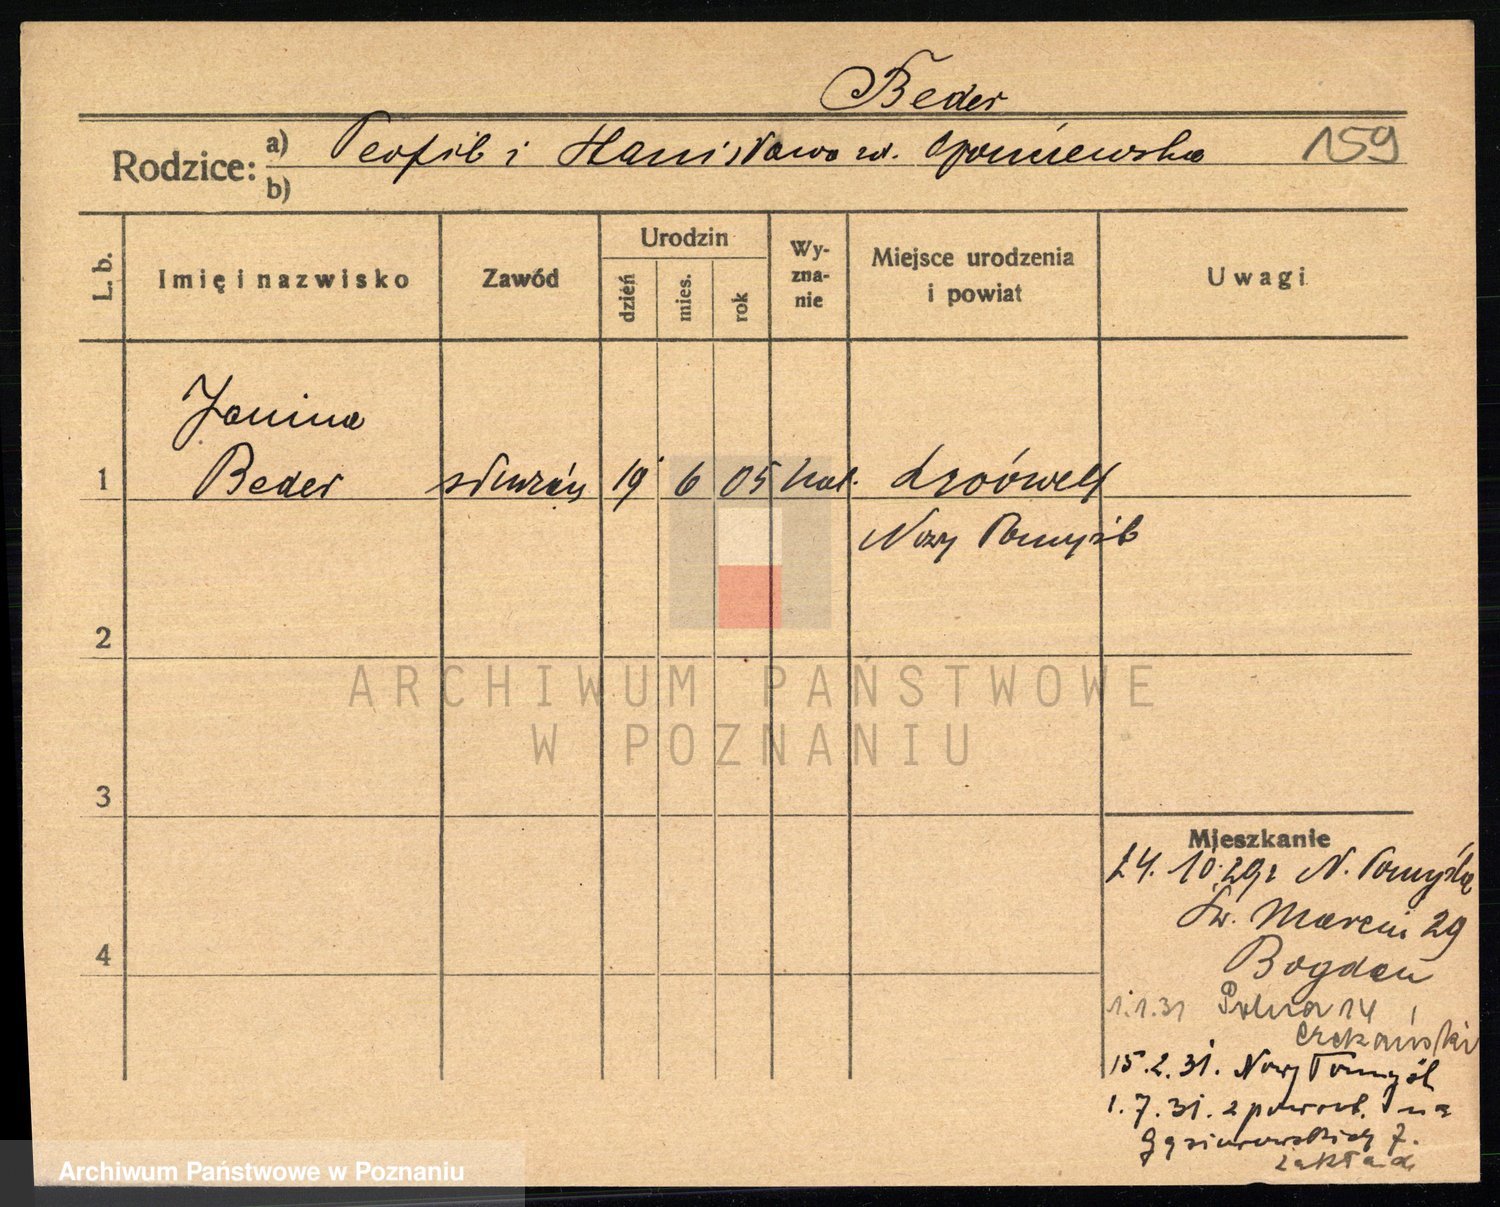 Beder
Rodzice: a) Teofil i Stanisława z d.
159
b)
L. b.
Imię i nazwisko
Zawód
Urodzin
dzień
mies.
rok
Wy-
zna-
nie
Miejsce urodzenia
i powiat
Uwagi
Janina
1 Beder służąca 19 6 05 kat.
Nowy Tomyśl
2
3
4
ARCHIWUM PAŃSTWOWE
W POZNANIU
Mieszkanie
24. 10.29 z N. Tomyśla
Św. Marcin 29
Bogdan
1.1.31 Polna 14
15.2.31. Nowy Tomyśl
1.7.31. z powrot. na
Gąsiorowskich 7.
zakład
Archiwum Państwowe w Poznaniu